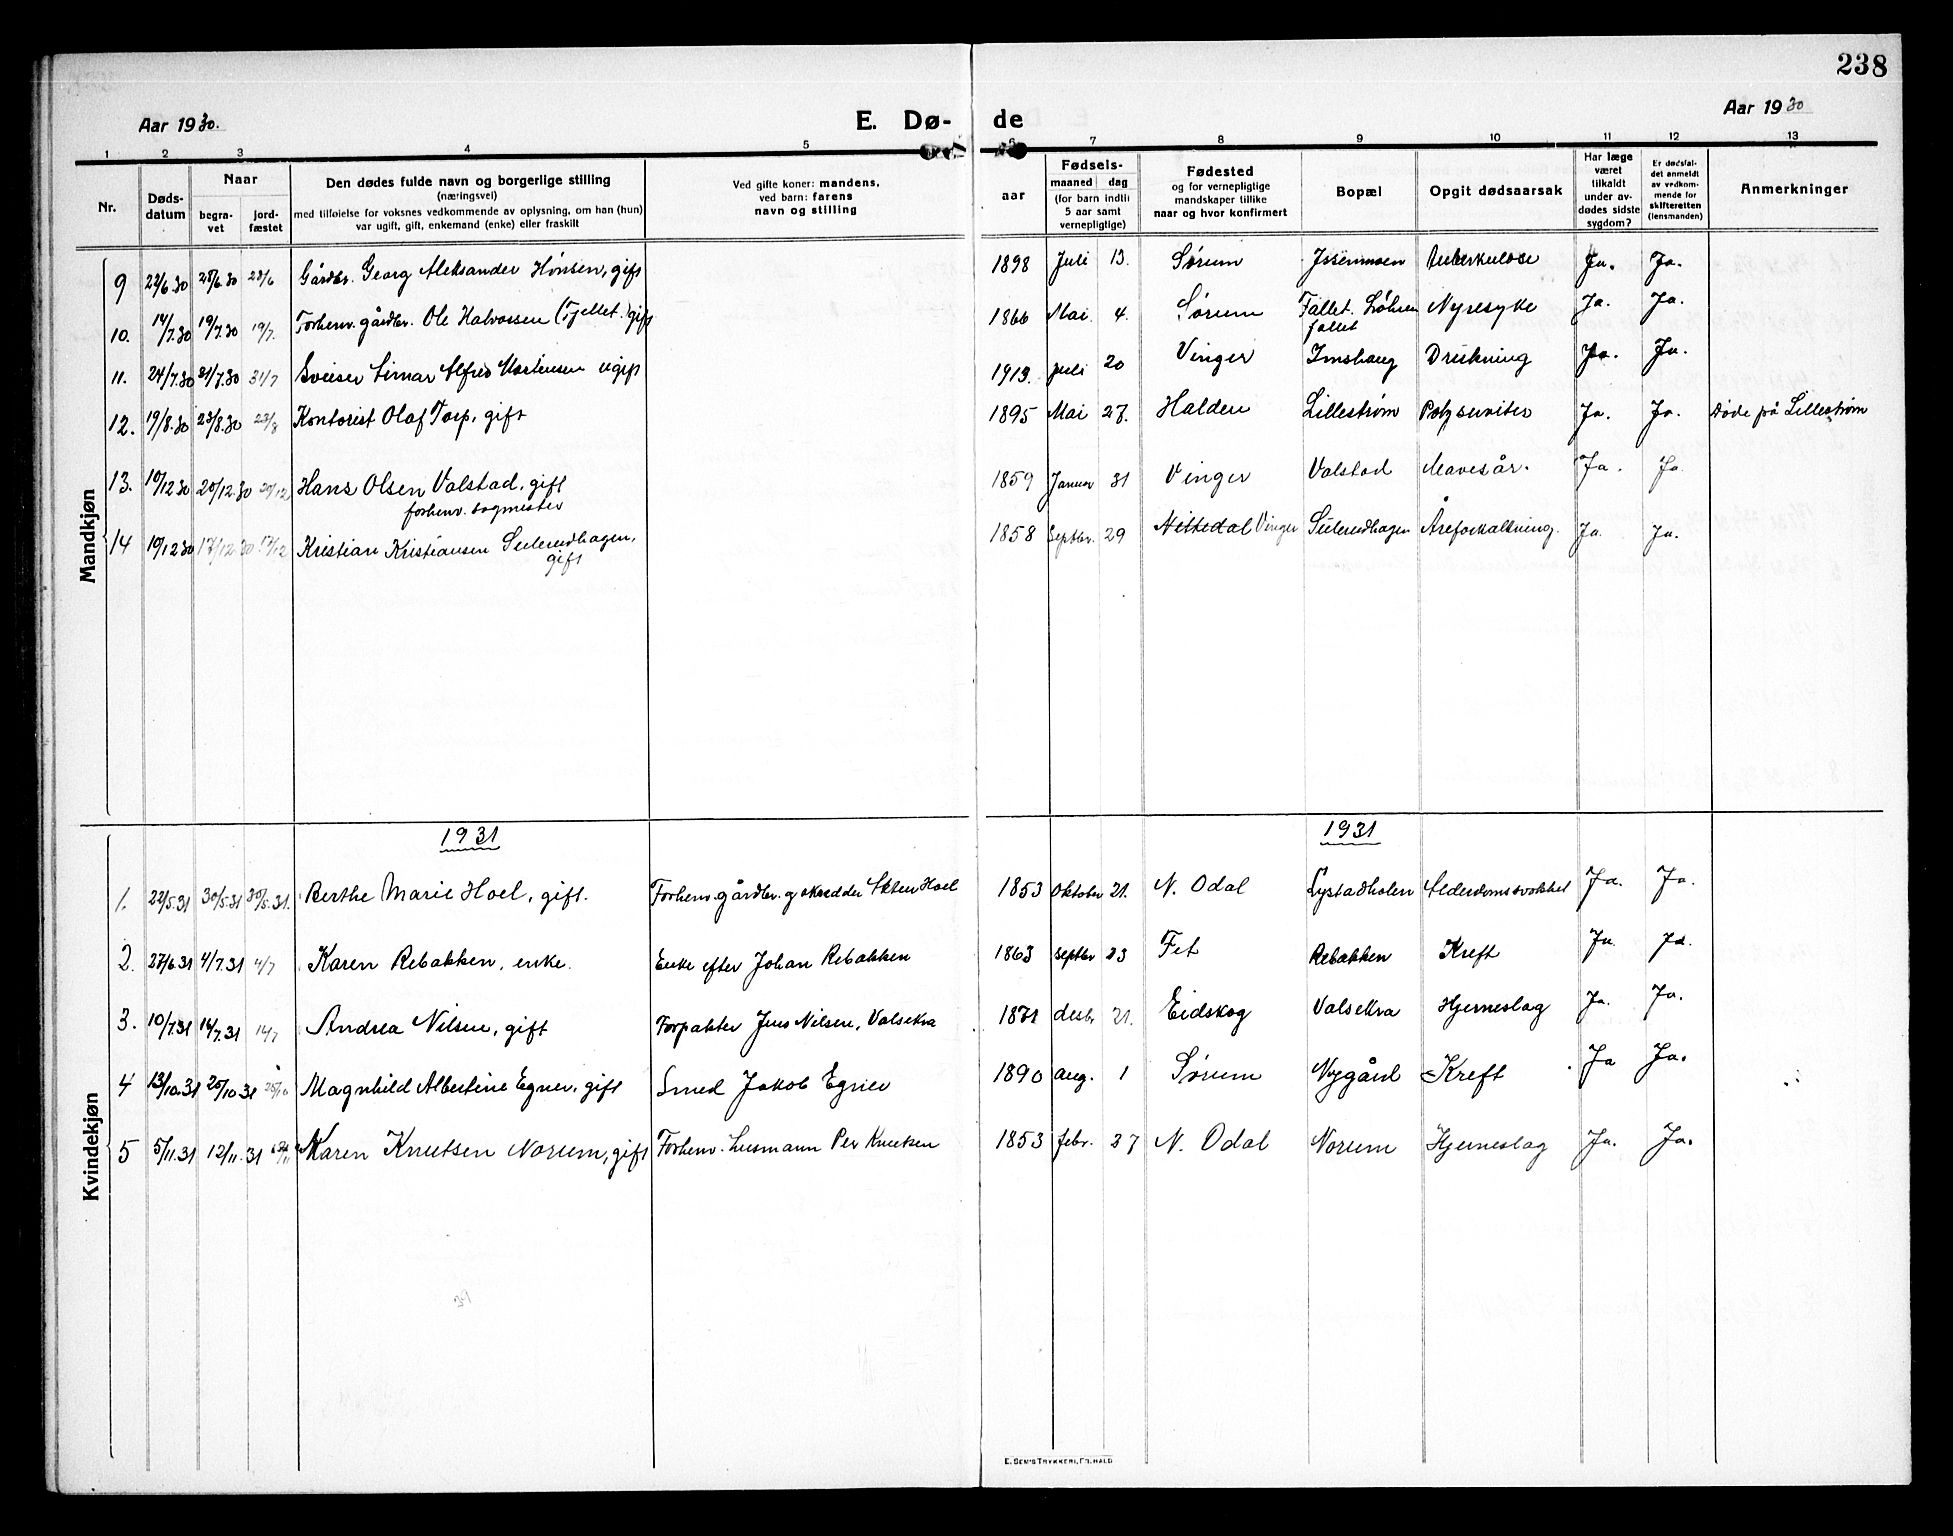 238
Aar 1930.
E. Dø- de
Aar 1930
1 2 3 4 5 6 7 8 9 10 11 12 13
Nr.
Døds-
datum
Naar
begra-
vet
jord-
fæstet
Den dødes fulde navn og borgerlige stilling
(næringsvei)
med tilføielse for voksnes vedkommende av oplysning, om han (hun)
var ugift, gift, enkemand (enke) eller fraskilt
Ved gifte koner: mandens,
ved barn: farens
navn og stilling
aar
Fødsels-
maaned dag
(for barn indtil
5 aar samt
vernepligtige)
Fødested
og for vernepligtige
mandskaper tillike
naar og hvor konfirmert
Bopæl
Opgit dødsaarsak
Har læge
været
tilkaldt
under av-
dødes sidste
sygdom?
Er dødsfal-
det anmeldt
av vedkom-
mende for
skifteretten
(lensmanden)
Anmerkninger
Mandkjøn
9 22/6.30 28/6.30 28/6 Gårdbr. Georg Aleksander Hønsen, gift 1898 Juli 13. Sørum Tuberkulose Ja. Ja.
10. 14/7.30 19/7.30 19/7. Forhenv. gårdbr. Ole Halvorsen (Fjellet.) gift 1866 Mai 4. Sørum Fallet. Nyresyke Ja. Ja.
fallet
11. 24/7.30 31/7.30 31/7 Sveiser Alfred Mortensen ugift 1913. juli 20 Vinger Imshaug Drukning Ja. Ja.
12. 19/8.30 23/8.30 23/8 Kontorist Olaf Torp, gift 1895 Mai 27. Halden Lillestrøm Ja. Ja. Døde på Lillestrøm
13. 10/12 30 20/12.30 20/12 Hans Olsen Valstad, gift 1859 Januar 31 Vinger Valstad Mavesår. Ja. Ja.
forhenv. sagmester
14 10/12 30 17/12.30 17/12 Kristian Kristiansen Sulerudhagen, 1858 Septbr. 29 Nittedal Vinger Sulerudhagen Åreforkalkning. Ja. Ja.
gift
1931 1931
Kvindekjøn
1. 22/5.31 30/5.31 30/5.31. Berthe Marie Hoel, gift. Forhenv. gårdbr. og skredder Hoel 1853 Oktober 21. N. Odal Alderdomssvakhet Ja. Ja.
2. 27/6.31 4/7.31 4/7 Karen Rebakken, enke. Enke efter Johan Rebakken 1863 septbr 23 Fet Rebakken Kreft Ja. Ja.
3. 10/7.31 14/7.31 14/7 Andrea Nilsen, gift Forpakter Jens Nilsen, Valsekra 1871 desbr 21. Eidskog Valsekra Hjerneslag Ja. Ja.
4 13/10.31 20/10.31 20/10 Magnhild Albertine Egner, gift Smed Jakob Egner 1890 aug. 1 Sørum Nygård Kreft Ja Ja.
5 5/11.31 12/11.31 Karen Knutsen Norum, gift Forhenv. Per Knutsen 1853 febr. 27 N. Odal Norum Hjerneslag Ja. Ja.
E. SEM'S TRYKKERI, FR.HALD